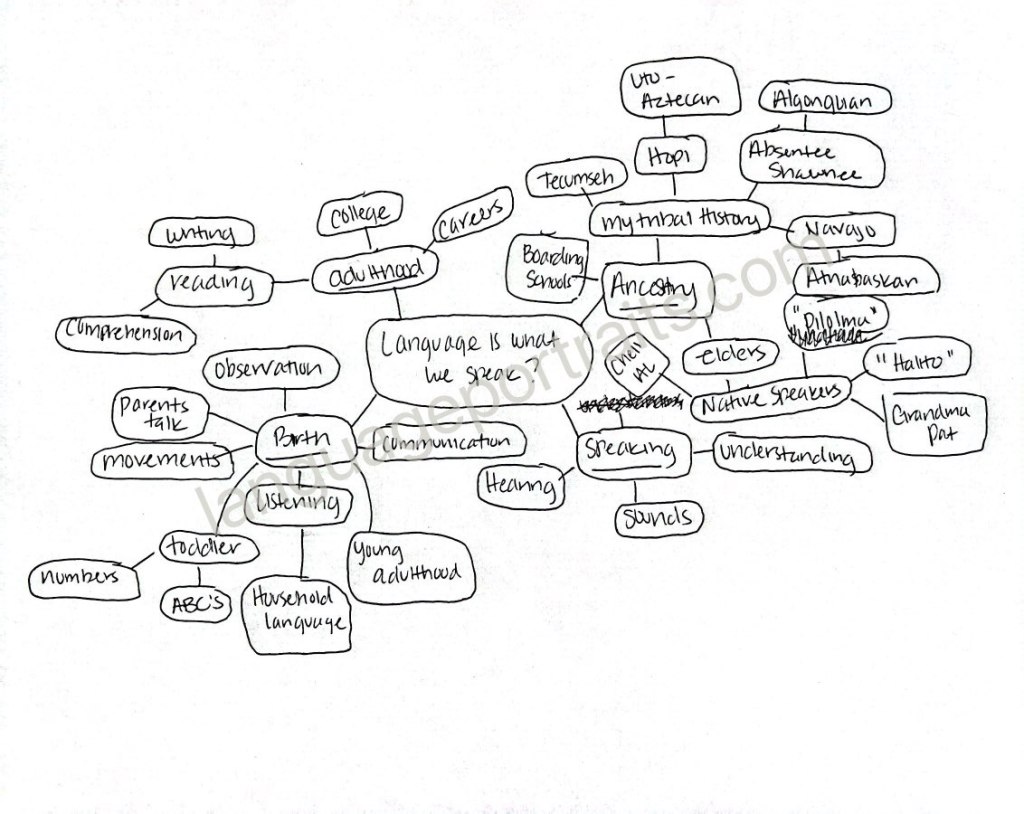 Uto -
Aztecan
Algonquian
Hopi
Absentee
Shawnee
Tecumseh
My tribal History
Navajo
Athabaskan
College
careers
writing
adulthood
reading
Comprehension
Boarding
Schools
Ancestry
elders
Language Is what
we speak?
"Halito"
Native Speakers
Grandma
Pat
Observation
Parents
talk
movements
Birth
Communication
Speaking
understanding
Hearing
Sounds
Listening
toddler
numbers
ABC's
Household
language
young
adulthood
languageportraits.com